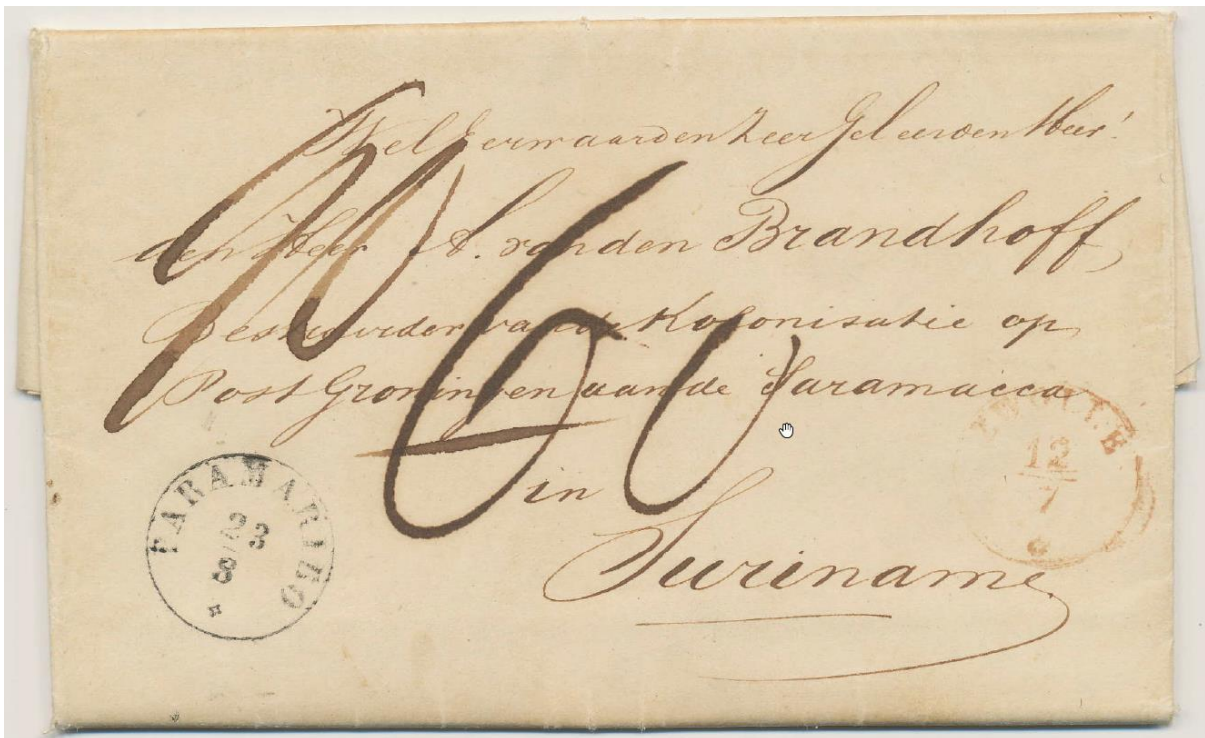 WelEerwaarden Zeer Geleerden Heer!
den Heer A. van den Brandhoff
Bestuurder van de Kolonisatie op
Post Groningen aan de Saramacca
in
Suriname
60
PARAMARIBO
23
8
12
7